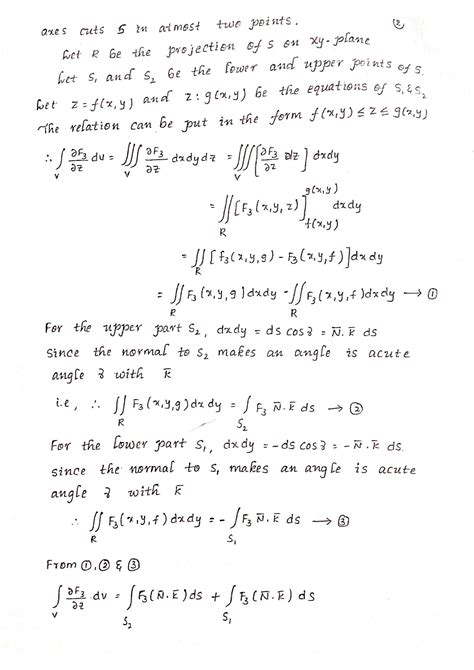 ②
axes cuts S in atmost two points.
Let R be the projection of S on xy-plane
Let S₁ and S₂ be the lower and upper points of S.
Let z = f(x,y) and z : g(x,y) be the equations of S₁ & S₂
The relation can be put in the form f(x,y) ≤ z ≤ g(x,y)
∴ ∫_V ∂F₃/∂z dv = ∭_V ∂F₃/∂z dxdydz = ∭_V [∂F₃/∂z dz] dxdy
= ∬_R [F₃(x,y,z)]_{f(x,y)}^{g(x,y)} dxdy
= ∬_R [f₃(x,y,g) - F₃(x,y,f)] dxdy
= ∬_R F₃(x,y,g) dxdy - ∬_R F₃(x,y,f) dxdy → ①
For the upper part S₂, dxdy = ds cos3 = N̄. k̄ ds
since the normal to S₂ makes an angle is acute
angle 3 with k̄
i.e, ∴ ∬_R F₃(x,y,g) dxdy = ∫_{S₂} F₃ N̄. k̄ ds → ②
For the lower part S₁, dxdy = -ds cos3 = -N̄. k̄ ds.
since the normal to S₁ makes an angle is acute
angle 3 with k̄
∴ ∬_R F₃(x,y,f) dxdy = - ∫_{S₁} F₃ N̄. k̄ ds → ③
From ①, ② & ③
∫_V ∂F₃/∂z dv = ∫_{S₂} F₃(N̄. k̄) ds + ∫_{S₁} F₃(N̄. k̄) ds